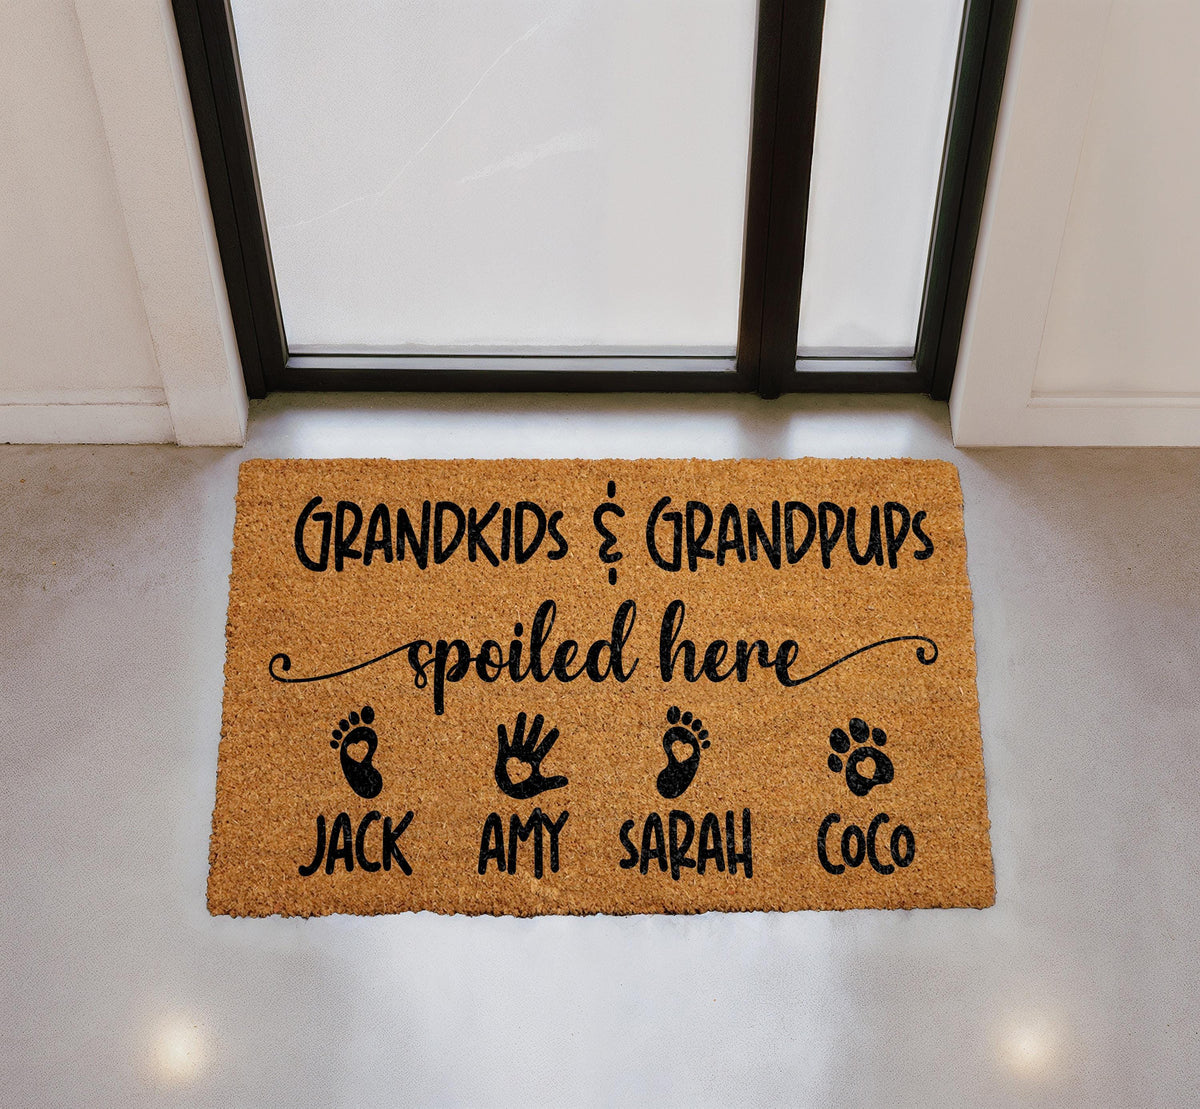 GRANDKIDs & GRANDPUPs
spoiled here
JACK AMY sARAH CoCo